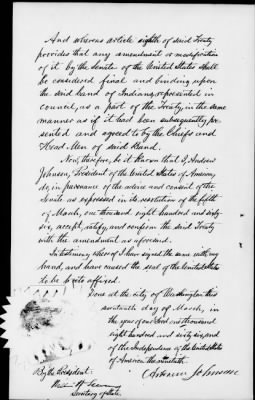 And whereas article eighth of said Treaty
provides that any amendment or modification
of it by the Senate of the United States shall
be considered final and binding upon
the said band of Indians, represented in
council, as a part of the Treaty, in the same
manner as if it had been subsequently pre-
sented and agreed to by the Chiefs and
Head-Men of said band.
Now, therefore, be it known that I, Andrew
Johnson, President of the United States of America,
do, in pursuance of the advice and consent of the
Senate as expressed in its resolution of the fifth
of March, one thousand eight hundred and sixty-
six, accept, ratify, and confirm the said Treaty
with the amendment as aforesaid.
In testimony whereof I have signed the same with my
hand, and have caused the seal of the United States
to be hereto affixed.
Done at the city of Washington this
day of March, in
the year of our Lord one thousand
eight hundred and sixty-six, and
of the Independence of the United States
of America the ninetieth.
Andrew Johnson
By the President:
Secretary of State.